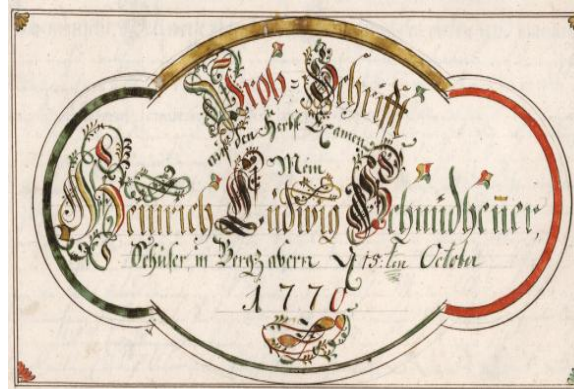 Prob Schrifft
auf den Herbst Examen
Mein
Heinrich Ludwig Schmidheuer,
Schüler in Bergzabern d 15:ten October
1770.